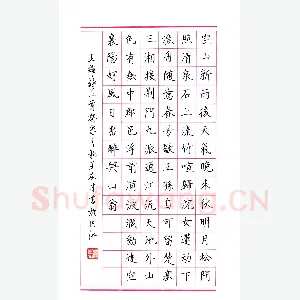 空山新雨後天氣晚來秋明月松間
照清泉石上流竹喧歸浣女蓮動下
漁舟隨意春芳歇王孫自可留楚塞
三湘接荆門九派通江流天地外山
色有無中郡邑浮前浦波瀾動遠空
襄陽好風日留醉與山翁
王維詩二首